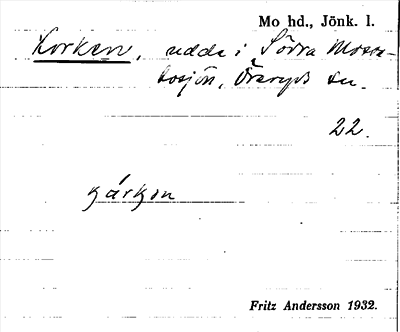 Mo hd., Jönk. l.
Korken, udde i Södra Mossa-
bosjön, Öreryds sn.
22.
kårkən
Fritz Andersson 1932.